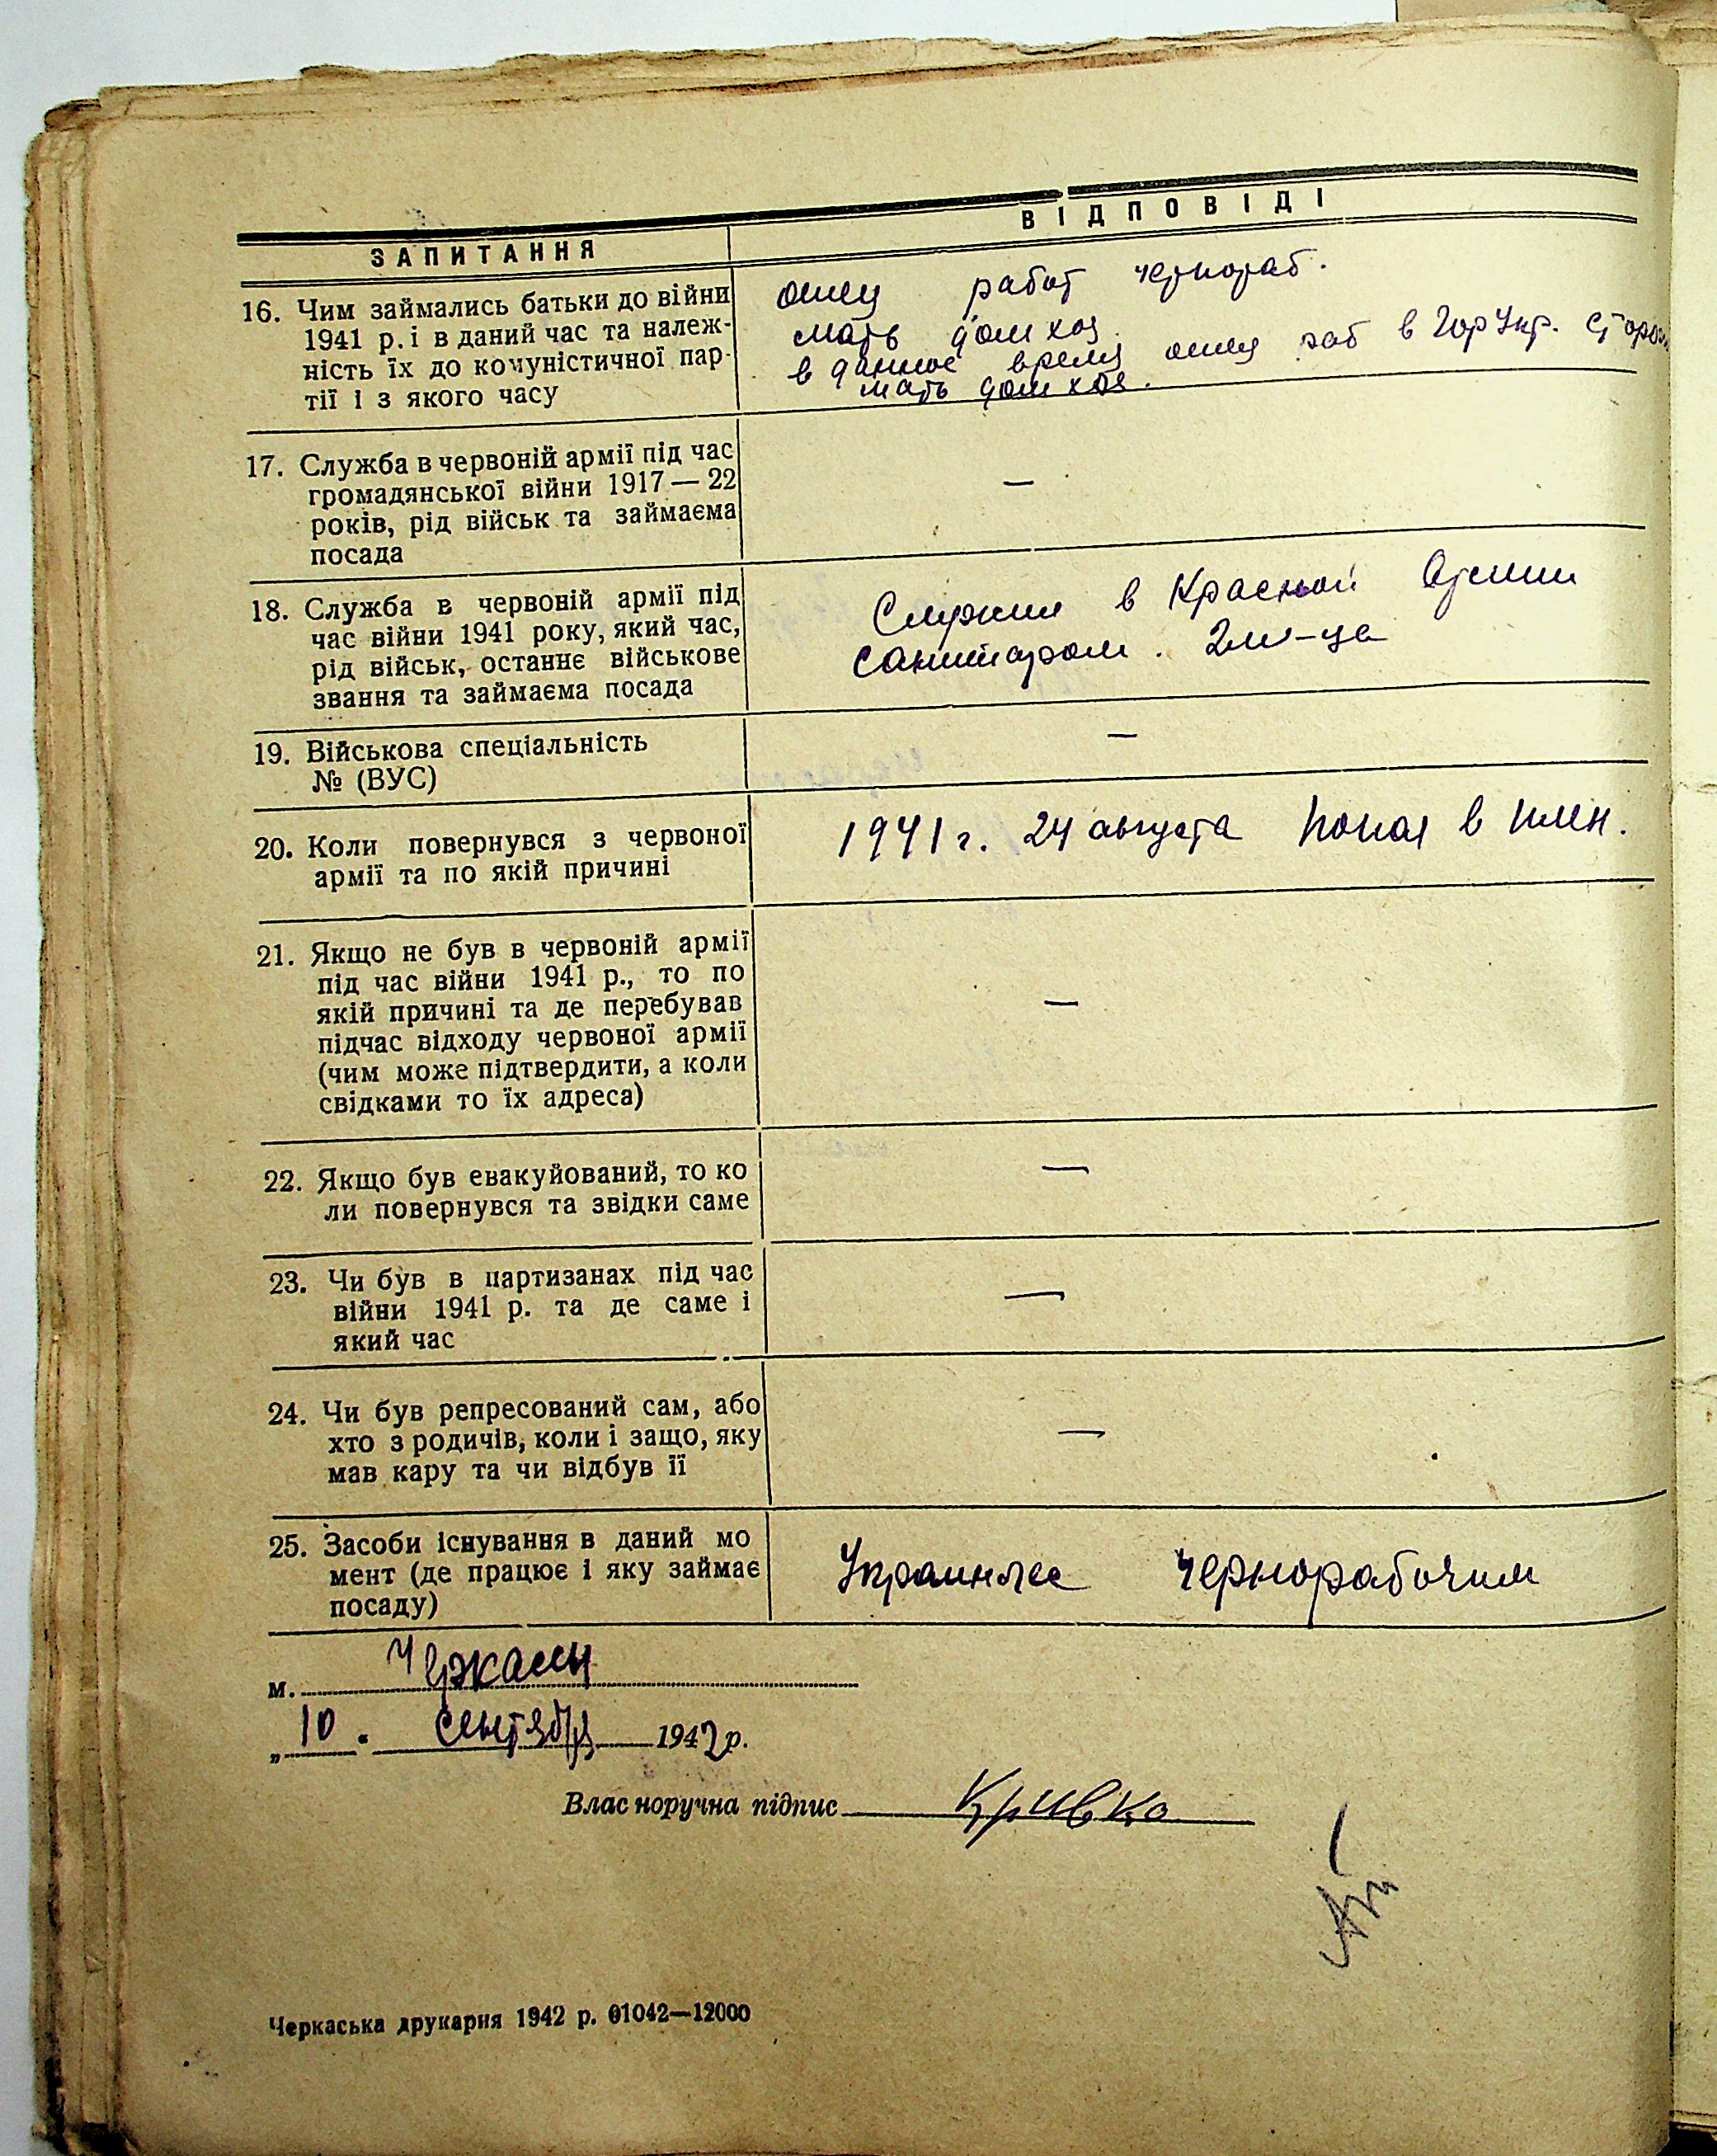 ЗАПИТАННЯ
ВІДПОВІДІ
16. Чим займались батьки до війни
1941 р. і в даний час та належ-
ність їх до комуністичної пар-
тії і з якого часу
отец работ чернораб.
мать дом хоз.
в данное время отец раб в ГорУпр. сторож
мать дом хоз.
17. Служба в червоній армії під час
громадянської війни 1917 — 22
років, рід військ та займаєма
посада
—
18. Служба в червоній армії під
час війни 1941 року, який час,
рід військ, останнє військове
звання та займаєма посада
Служил в Красной Армии
санитаром. 2м-ца
19. Військова спеціальність
№ (ВУС)
—
20. Коли повернувся з червоної
армії та по якій причині
1941 г. 24 августа попал в плен.
21. Якщо не був в червоній армії
під час війни 1941 р., то по
якій причині та де перебував
підчас відходу червоної армії
(чим може підтвердити, а коли
свідками то їх адреса)
—
22. Якщо був евакуйований, то ко
ли повернувся та звідки саме
—
23. Чи був в партизанах під час
війни 1941 р. та де саме і
який час
—
24. Чи був репресований сам, або
хто з родичів, коли і защо, яку
мав кару та чи відбув її
—
25. Засоби існування в даний мо
мент (де працює і яку займає
посаду)
чернорабочим
м. Черкассы
„10. сентября 1942 р.
Власноручна підпис Кривко
Черкаська друкарня 1942 р. 01042—12000